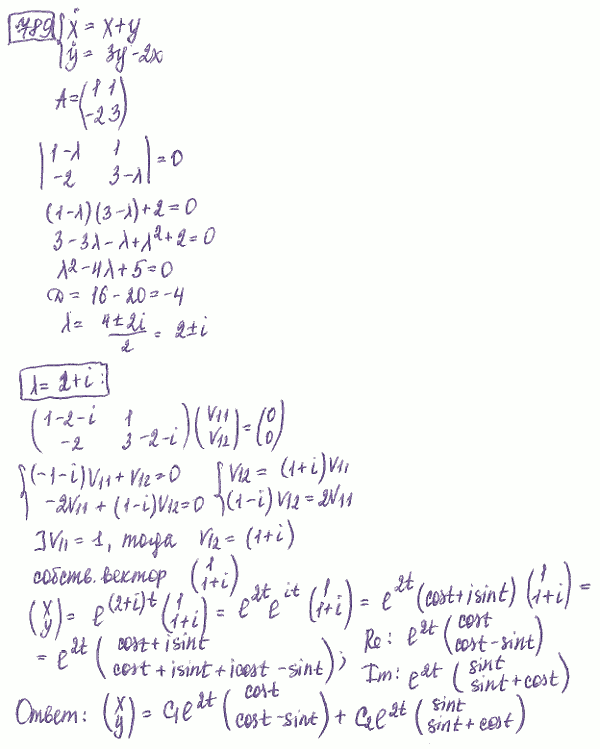 789 { ẋ = x+y
ẏ = 3y-2x
A = (1 1
-2 3)
|1-λ 1
-2 3-λ| = 0
(1-λ)(3-λ)+2=0
3-3λ-λ+λ²+2=0
λ²-4λ+5=0
D = 16-20=-4
λ = (4±2i)/2 = 2±i
λ = 2+i:
(1-2-i 1
-2 3-2-i)(V11
V12) = (0
0)
{(-1-i)V11+V12=0 {V12 = (1+i)V11
-2V11+(1-i)V12=0 (1-i)V12=2V11
∃V11=1, тогда V12=(1+i)
собств. вектор (1
1+i)
(x
y) = e^(2+i)t (1
1+i) = e^2t e^it (1
1+i) = e^2t (cost+isint) (1
1+i) =
= e^2t (cost+isint
cost+isint+icost-sint); Re: e^2t (cost
cost-sint)
Im: e^2t (sint
sint+cost)
Ответ: (x
y) = C1e^2t (cost
cost-sint) + C2e^2t (sint
sint+cost)